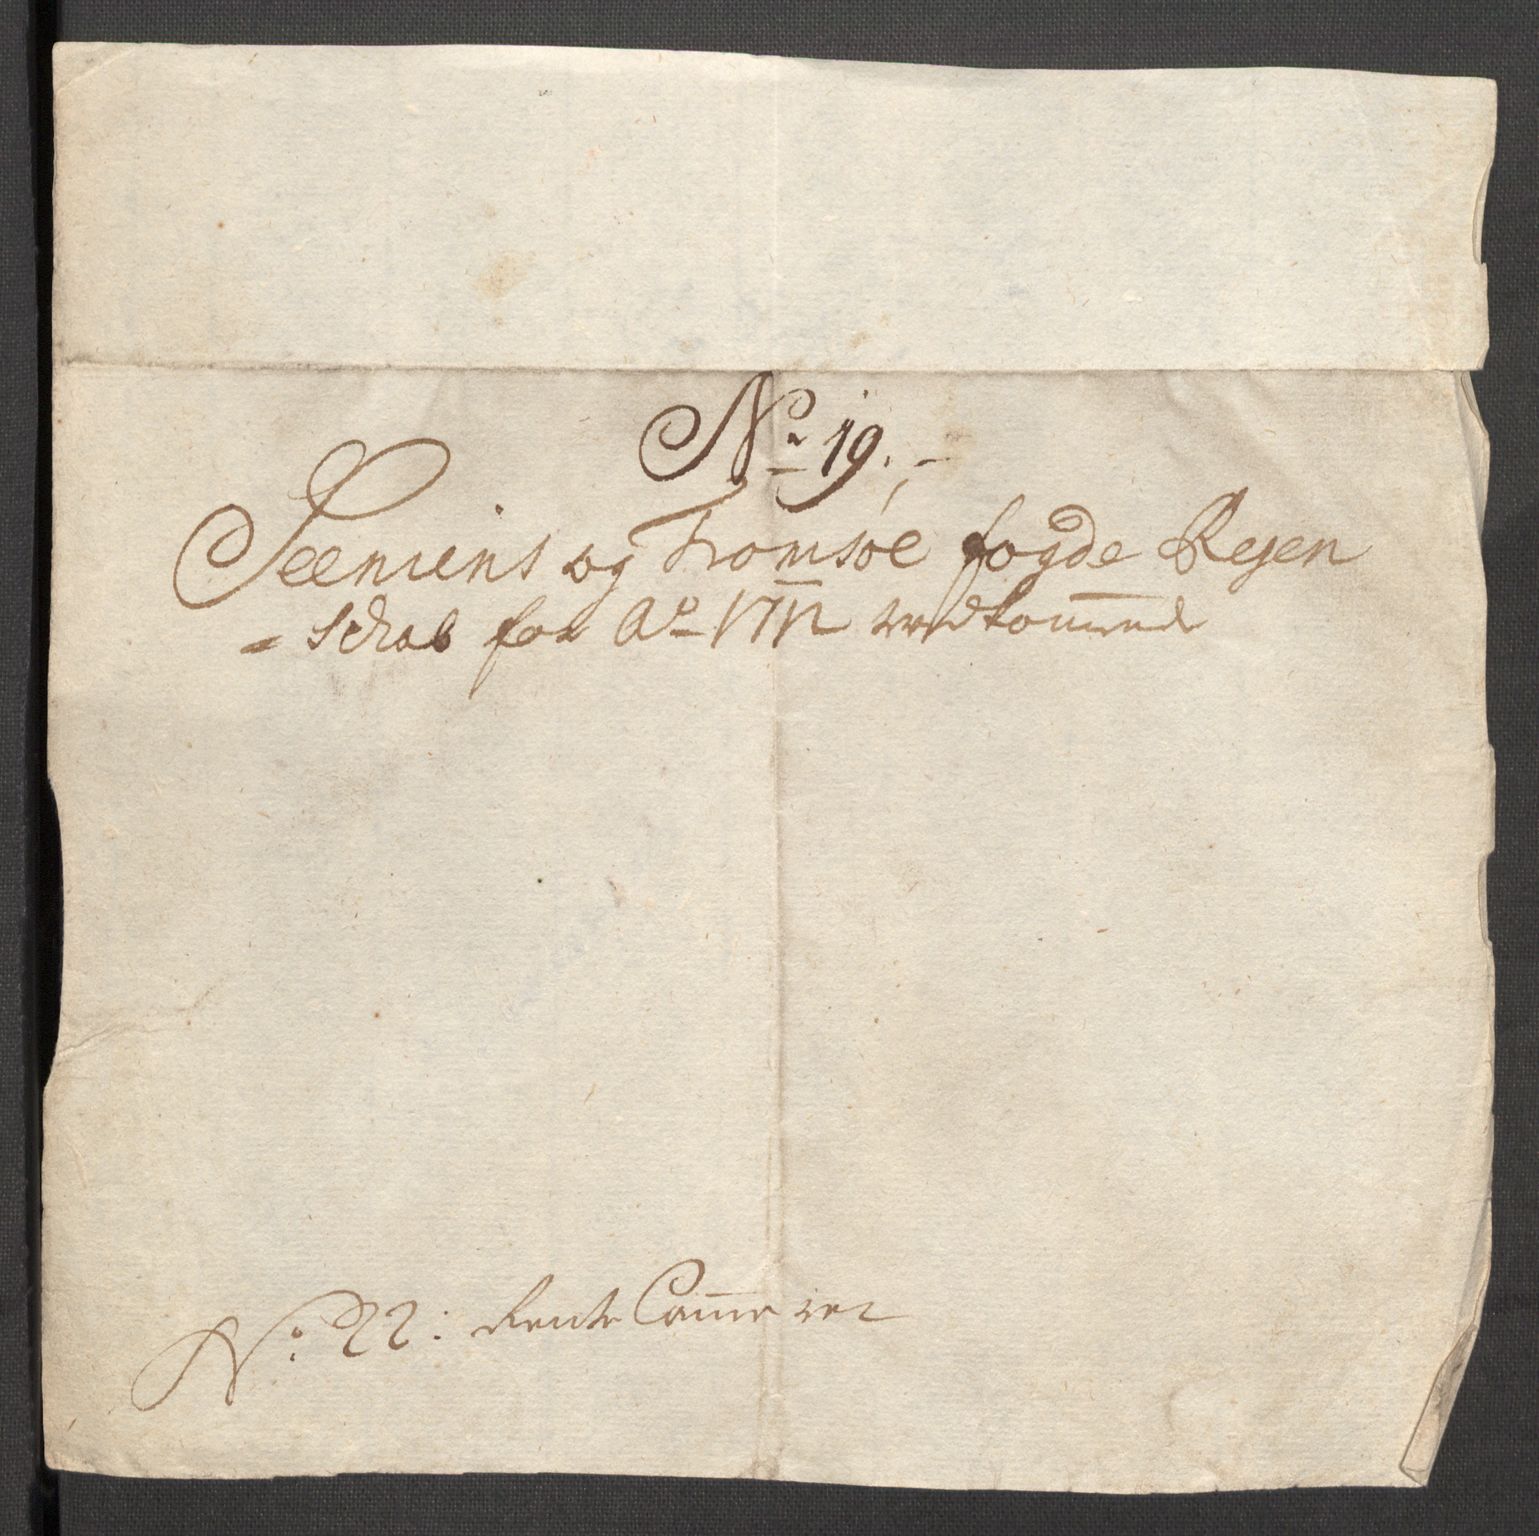 No 19.
Seeniens og Tromsøe fogde Regen
= schab for Ao 1712 vedkommende
No. 22: Rente Cammeret